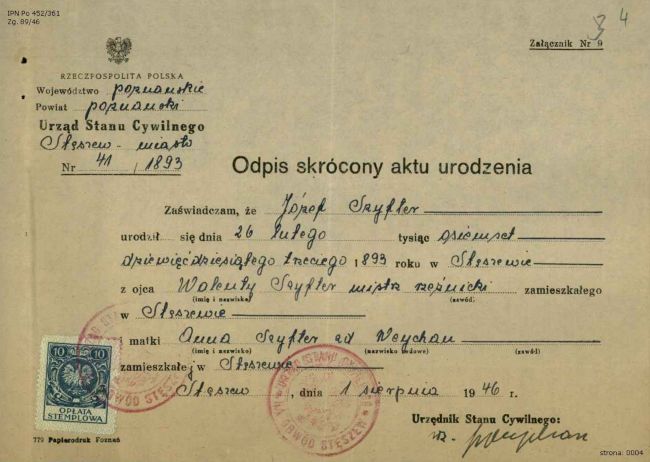 IPN Po 452/361
Zg. 89/46
3 4
Załącznik Nr 9
RZECZPOSPOLITA POLSKA
Województwo poznańskie
Powiat poznański
Urząd Stanu Cywilnego
Stęszew - miasto
Nr 41 / 1893
Odpis skrócony aktu urodzenia
Zaświadczam, że Józef Szyfter
urodził się dnia 26 lutego tysiąc osiemset
dziewięćdziesiątego trzeciego 1893 roku w Stęszewie
z ojca Walenty Szyfter mistrz rzeźnicki zamieszkałego
(imię i nazwisko) (zawód)
w Stęszewie
i matki Anna Szyfter zd Weychan
(imię i nazwisko) (nazwisko rodowe) (zawód)
zamieszkałej w Stęszewie
Stęszew, dnia 1 sierpnia 1946 r.
Urzędnik Stanu Cywilnego:
10 10
OPŁATA
STEMPLOWA
OBWÓD STĘSZEW
OBWÓD STĘSZEW
779 Papierodruk Poznań
strona: 0004